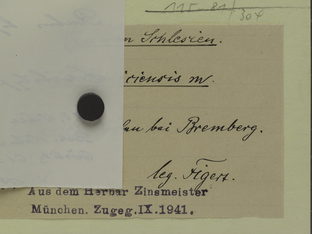 115-81/304
Schlesien.
iciensis m.
bei Bremberg.
leg. Figert.
Aus dem Herbar Zinsmeister
München. Zugeg.IX.1941.